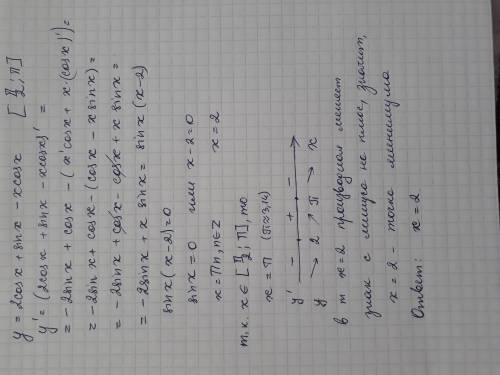 y = 2cosx + sinx - xcosx [π/2; π]
y' = (2cosx + sinx - xcosx)' =
= -2sinx + cosx - (x'cosx + x·(cosx)') =
= -2sinx + cosx - (cosx - xsinx) =
= -2sinx + cosx - cosx + x sinx =
= -2sinx + x sinx = sinx (x-2)
sinx (x-2) = 0
sinx = 0 или x-2=0
x = πn, n∈Z x = 2
т.к. x ∈ [π/2; π], то
x = π (π≈3,14)
y' - + -
y → 2 ↗ π → x
в т x=2 производная меняет
знак с минуса на плюс, значит,
x = 2 - точка минимума
Ответ: x = 2